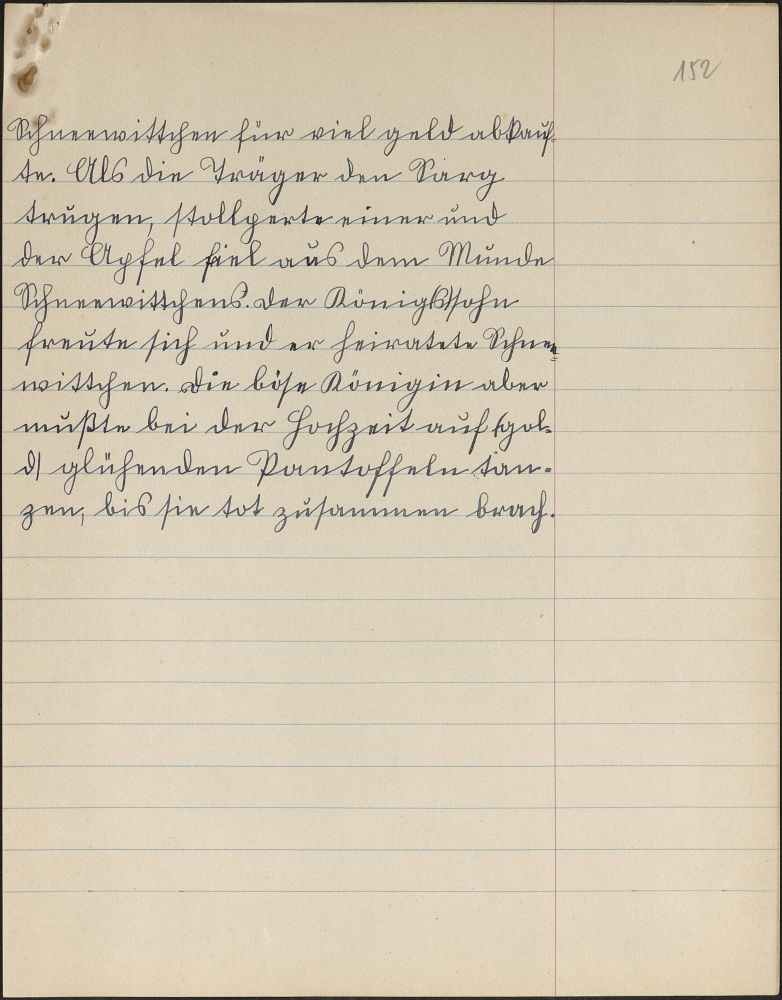 152
Schneewittchen für viel geld abkauf-
te. Als die Träger den Sarg
trugen, stollperte einer und
der Apfel fiel aus dem Munde
Schneewittchens. der Königssohn
freute sich und er heiratete Schnee
wittchen. die böse Königin aber
mußte bei der Hochzeit auf (gol-
d) glühenden Pantoffeln tan-
zen, bis sie tot zusammen brach.